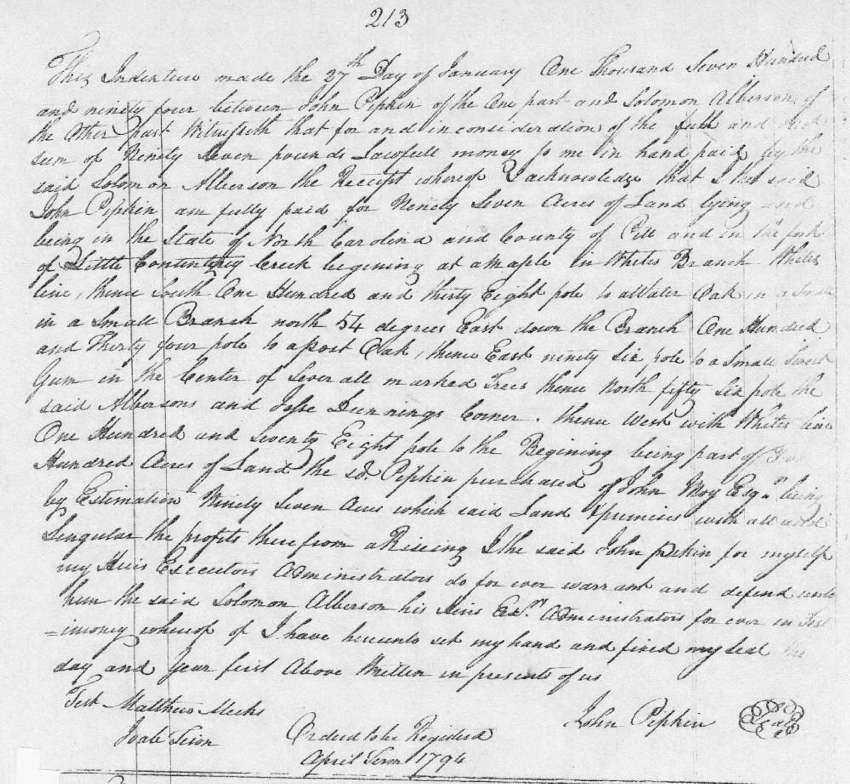 213
This Indenture made the 27th Day of January One Thousand Seven Hundred
and ninety four between John Pipkin of the One part and Solomon Alberson of
the Other part Witnesseth that for and in consideration of the full and
sum of Ninety Seven pounds Lawfull money to me in hand paid by the
said Solomon Alberson the Receipt whereof I acknowledge that I the said
John Pipkin am fully paid for Ninety Seven Acres of Land lying and
being in the State of North Carolina and County of Pitt and in the fork
of Little Contentney Creek begining at a Maple in Whites Branch Whites
line, thence South One Hundred and thirty Eight pole to a Water Oak in a Small
in a Small Branch north 54 degrees East down the Branch One Hundred
and Thirty four pole to a post Oak, thence East ninety six pole to a Small Sweet
Gum in the Center of Severall marked Trees thence North fifty six pole the
said Albersons and Jesse Dunnings Corner. thence West with Whites line
One Hundred and seventy Eight pole to the Begining being part of
Hundred Acres of Land the sd. Pipkin purchased of John Moy Esqr. being
by Estimation Ninety Seven Acres which said Land & premises with all and
Singular the profits there from a Rising I the said John Pipkin for myself
my Heirs Executors Administrators do for ever warrant and defend unto
him the said Solomon Alberson his Heirs Exrs. Administrators for ever in Test
=imoney whereof of I have hereunto set my hand and fixed my seal the
day and year first Above Written in presents of us
Test Matthew Meeks
John Pipkin Seal
Orderd to be Registerd
April 1794